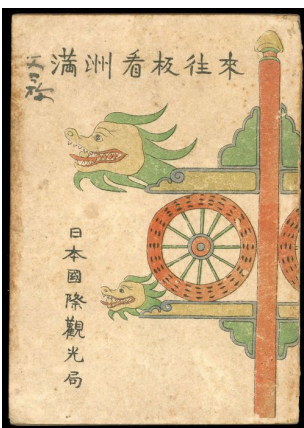 満洲看板往來
日本國際觀光局